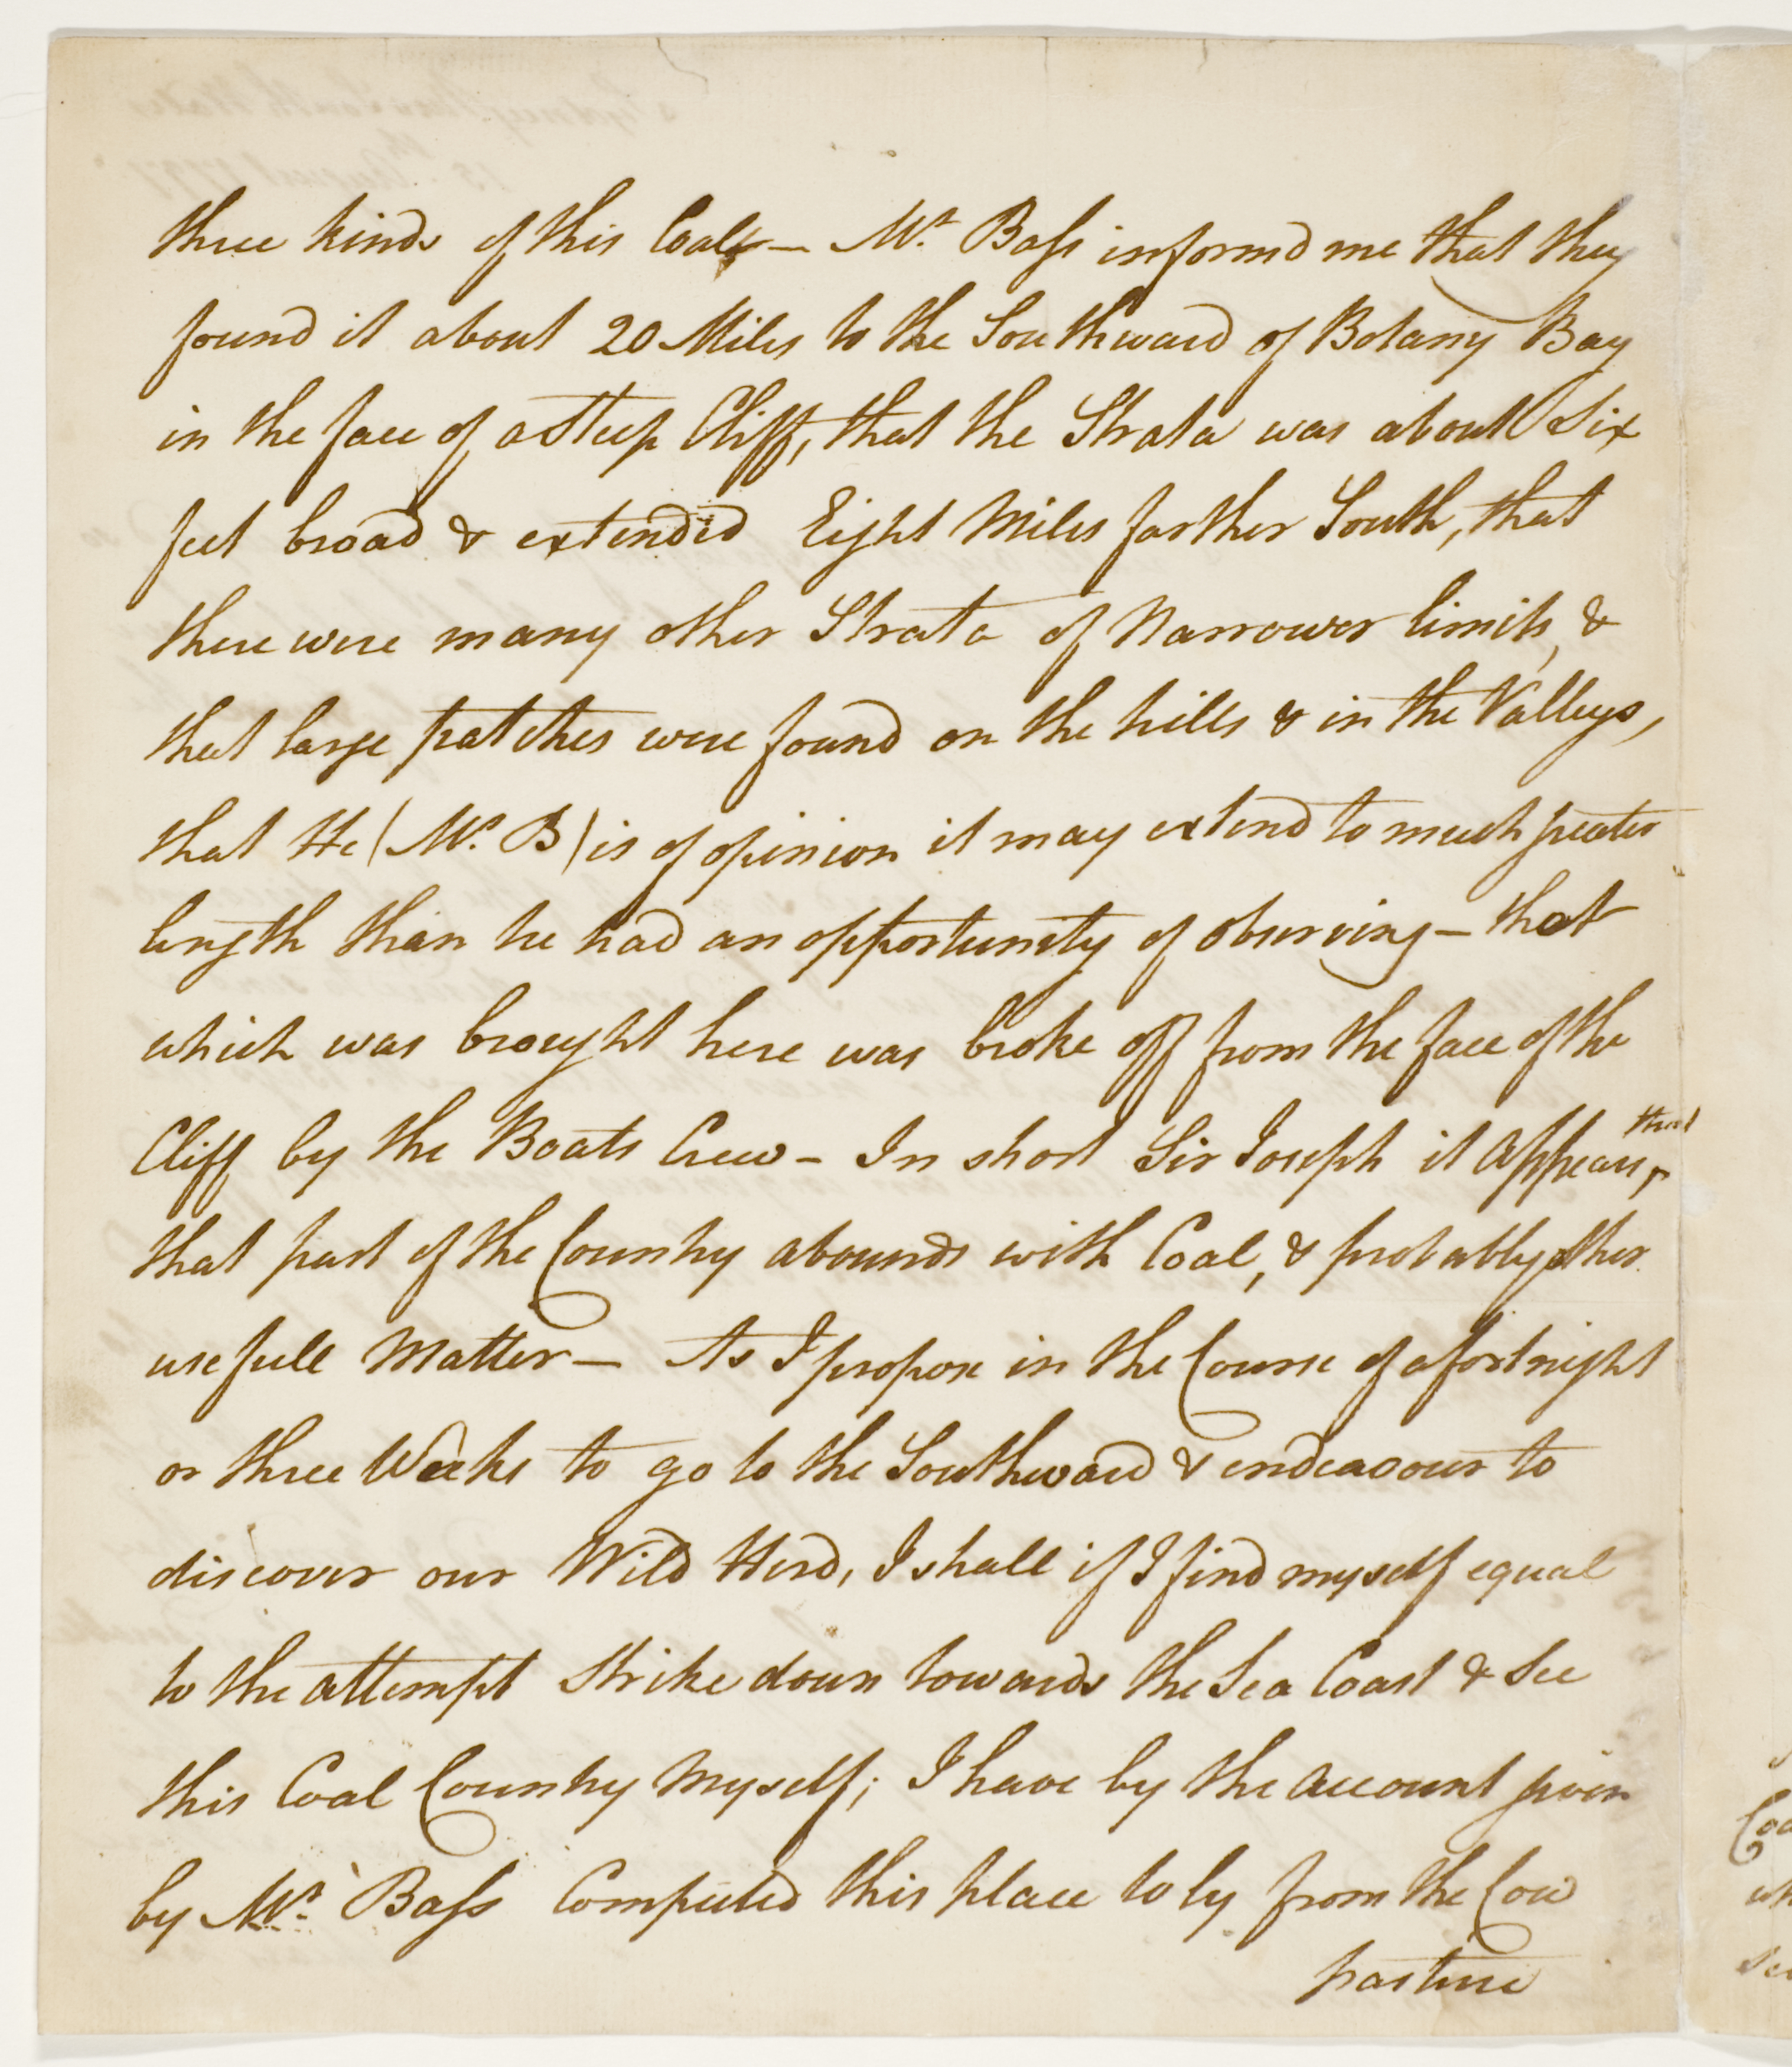 three kinds of this Coal — Mr. Bass informd me that they
found it about 20 Miles to the Southward of Botany Bay
in the face of a Steep Cliff, that the Strata was about Six
feet broad & extended Eight Miles farther South, that
there were many other Strata of Narrower limits, &
that large patches were found on the hills & in the Valleys,
that He (Mr. B) is of opinion it may extend to much greater
length than he had an opportunity of observing — that
which was brought here was broke off from the face of the
Cliff by the Boats Crew – In short Sir Joseph it Appears, that
that part of the Country abounds with Coal, & probably other
usefull Matter — As I propose in the Course of a fortnight
or three Weeks to go to the Southward & endeavour to
discover our Wild Herd, I shall if I find myself equal
to the attempt strike down towards the Sea Coast & See
this Coal Country Myself; I have by the account given
by Mr. Bass Computed this place to ly from the Cow
pasture